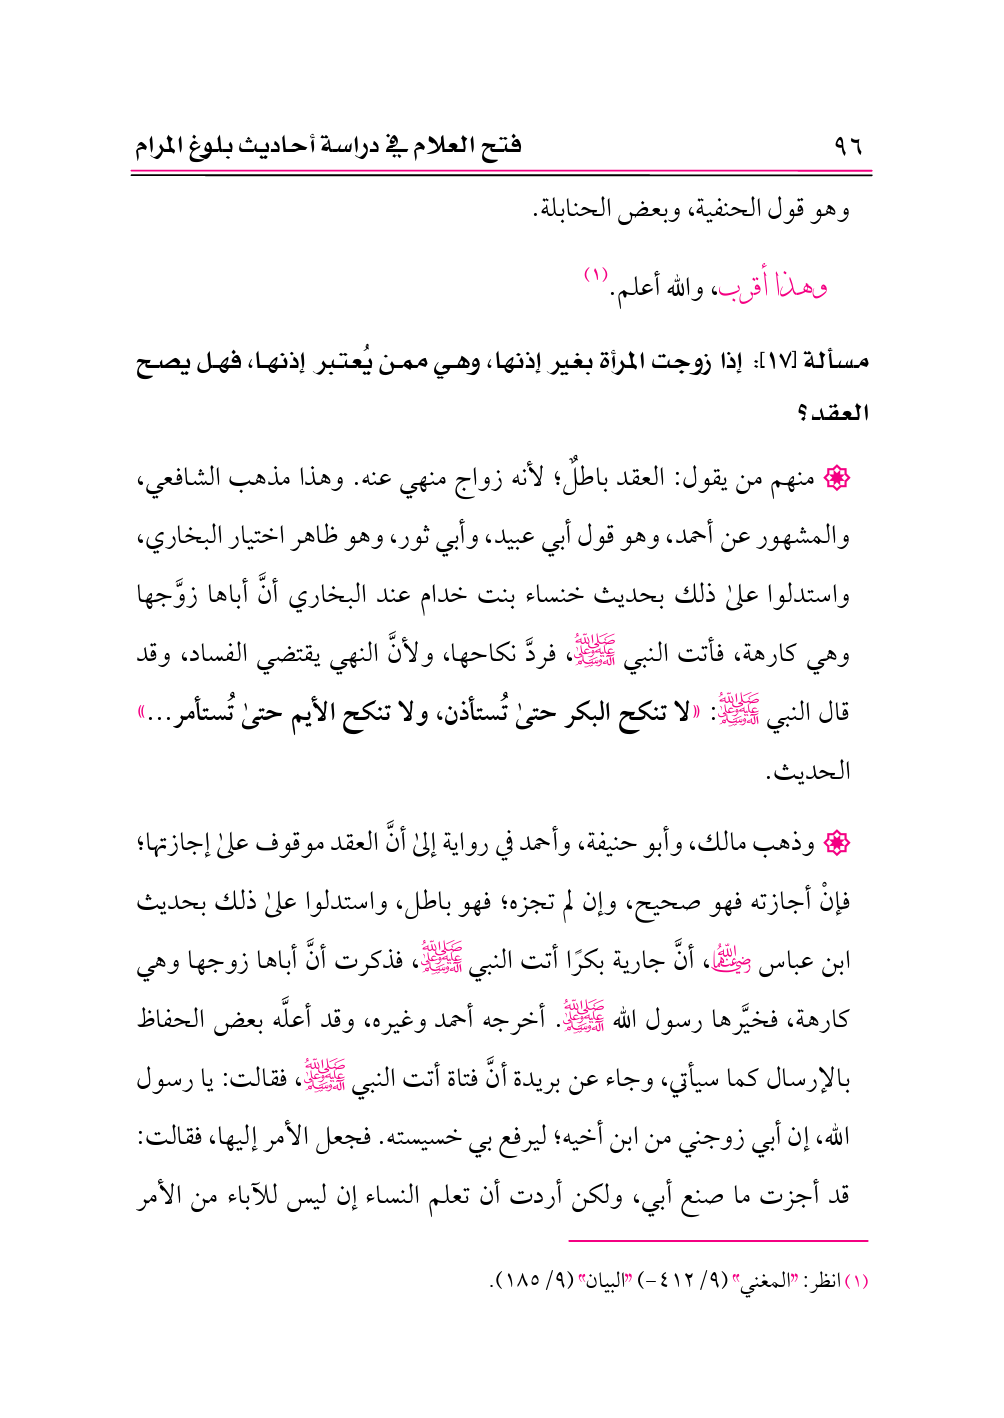 ٩٦ فتح العلام في دراسة أحاديث بلوغ المرام
وهو قول الحنفية، وبعض الحنابلة.
وهذا أقرب، والله أعلم.(١)
مسألة [١٧]: إذا زوجت المرأة بغير إذنها، وهي ممن يُعتبر إذنها، فهل يصح
العقد؟
منهم من يقول: العقد باطلٌ؛ لأنه زواج منهي عنه. وهذا مذهب الشافعي،
والمشهور عن أحمد، وهو قول أبي عبيد، وأبي ثور، وهو ظاهر اختيار البخاري،
واستدلوا علىٰ ذلك بحديث خنساء بنت خدام عند البخاري أنَّ أباها زوَّجها
وهي كارهة، فأتت النبي ﷺ، فردَّ نكاحها، ولأنَّ النهي يقتضي الفساد، وقد
قال النبي ﷺ: «لا تنكح البكر حتىٰ تُستأذن، ولا تنكح الأيم حتىٰ تُستأمر...»
الحديث.
وذهب مالك، وأبو حنيفة، وأحمد في رواية إلىٰ أنَّ العقد موقوف علىٰ إجازتها؛
فإنْ أجازته فهو صحيح، وإن لم تجزه؛ فهو باطل، واستدلوا علىٰ ذلك بحديث
ابن عباس رضي الله عنهما، أنَّ جارية بكرًا أتت النبي ﷺ، فذكرت أنَّ أباها زوجها وهي
كارهة، فخيَّرها رسول الله ﷺ. أخرجه أحمد وغيره، وقد أعلَّه بعض الحفاظ
بالإرسال كما سيأتي، وجاء عن بريدة أنَّ فتاة أتت النبي ﷺ، فقالت: يا رسول
الله، إن أبي زوجني من ابن أخيه؛ ليرفع بي خسيسته. فجعل الأمر إليها، فقالت:
قد أجزت ما صنع أبي، ولكن أردت أن تعلم النساء إن ليس للآباء من الأمر
(١) انظر: "المغني" (٩/ ٤١٢-) "البيان" (٩/ ١٨٥).